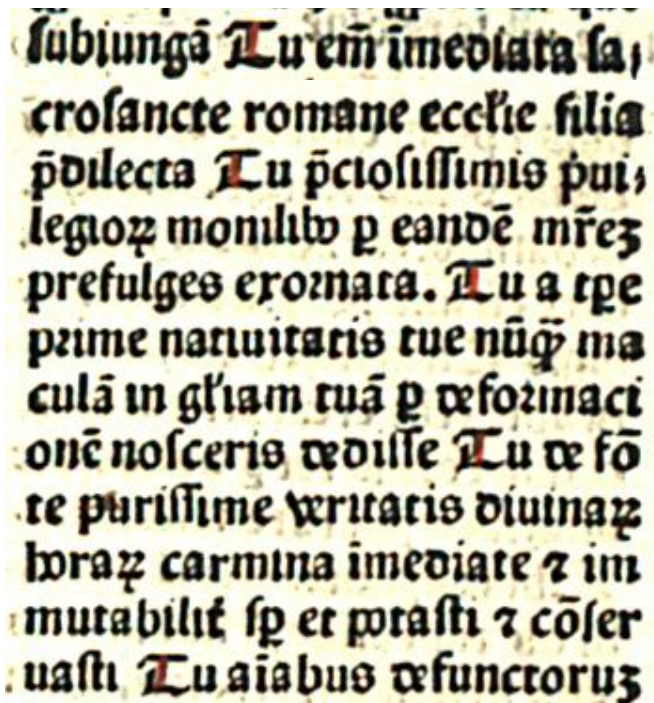 ſubiungā Tu em̄ īmediata ſa⸗
croſancte romane eccłie filia
p̄dilecta Tu p̄cioſiſſimis pͥui⸗
legioꝝ monilibꝰ ꝑ eandē mr̄eꝫ
prefulges exornata. Tu a tꝑe
prime natiuitatis tue nūꝙ̄ ma
culā in gł̄iam tuā ꝑ deformaci
onē noſceris dediſſe Tu de fō
te puriſſime veritatis diuinaꝝ
horaꝝ carmina īmediate ⁊ im
mutabilit̉ ſꝑ et potaſti ⁊ cōſer
uaſti Tu aīabus defunctoruꝫ